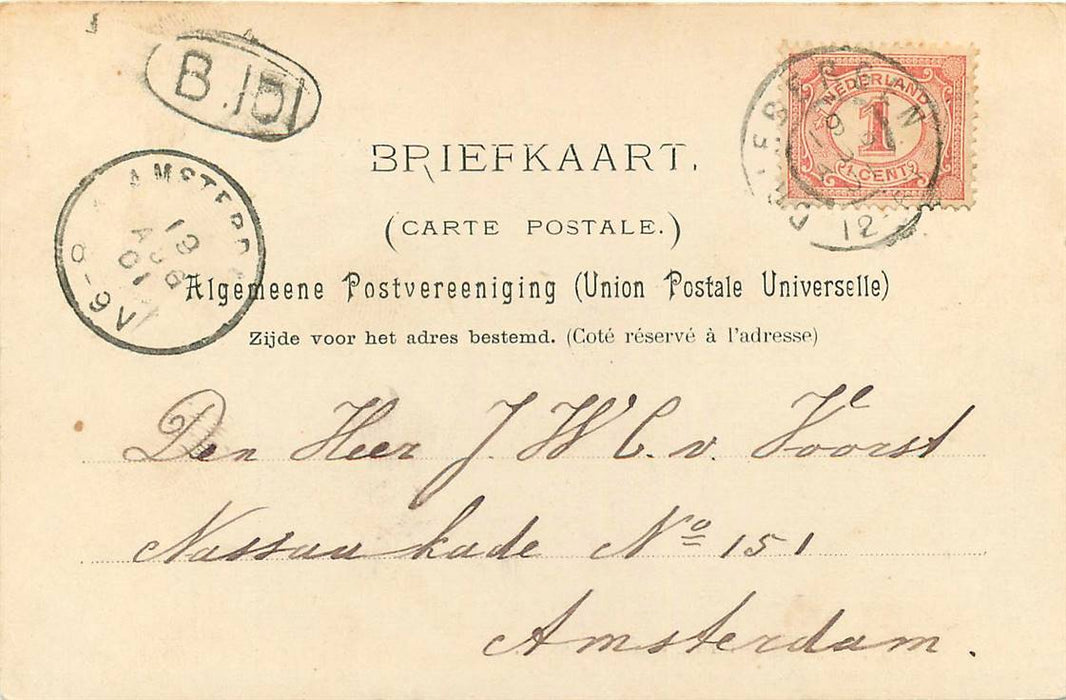 B.151
NEDERLAND
1
1 CENT
12
AMSTERD
13
AUG
01
8-9V
BRIEFKAART.
(CARTE POSTALE.)
Algemeene Postvereeniging (Union Postale Universelle)
Zijde voor het adres bestemd. (Coté réservé à l'adresse)
Den Heer J. W C. v. Voorst
Nassau kade No 151
Amsterdam.